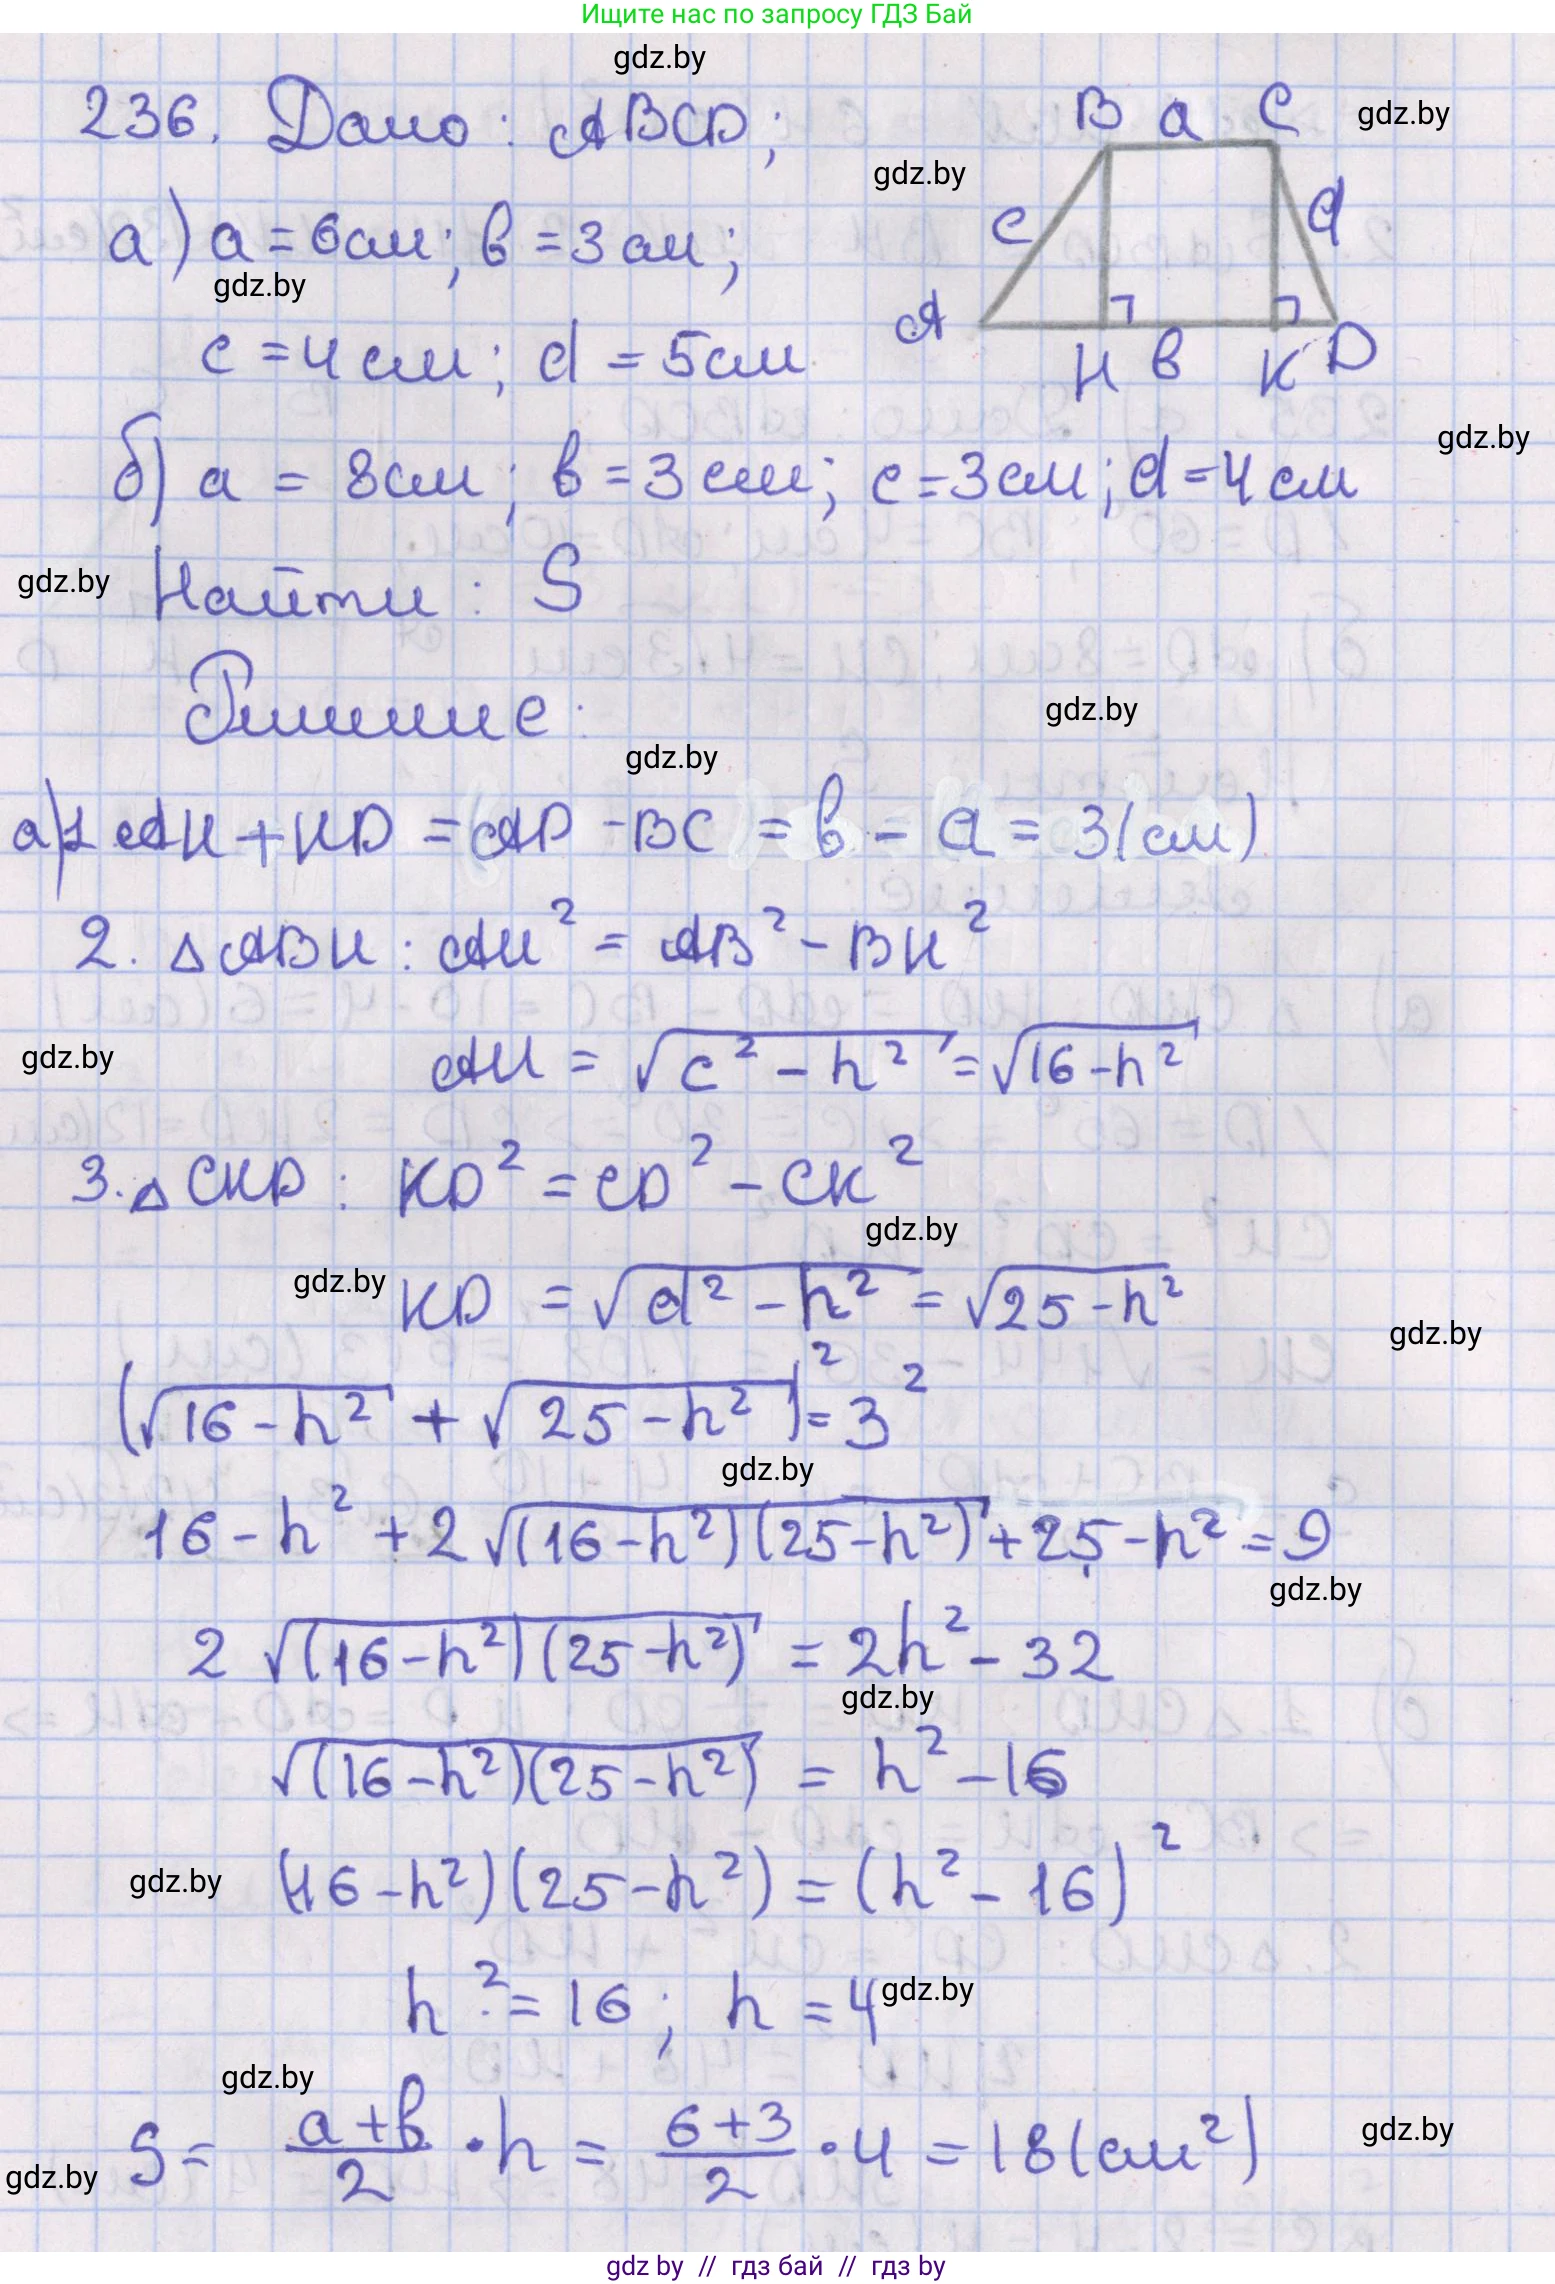 Ищите нас по запросу ГДЗ Бай
gdz.by
236. Дано: ABCD;
B a C
gdz.by
gdz.by
а) a = 6см; в = 3см;
c d
gdz.by
A H в K D
c = 4см; d = 5см
gdz.by
б) a = 8см; в = 3см; c = 3см; d = 4см
gdz.by
Найти: S
Решение:
gdz.by
gdz.by
а) 1. AH + KD = AD - BC = в - a = 3(см)
2. △ABH: AH² = AB² - BH²
gdz.by
AH = √(c² - h²) = √(16 - h²)
3. △CKD: KD² = CD² - CK²
gdz.by
gdz.by
KD = √(d² - h²) = √(25 - h²)
gdz.by
(√(16 - h²) + √(25 - h²))² = 3²
gdz.by
16 - h² + 2√((16 - h²)(25 - h²)) + 25 - h² = 9
gdz.by
2√((16 - h²)(25 - h²)) = 2h² - 32
gdz.by
√((16 - h²)(25 - h²)) = h² - 16
gdz.by
(16 - h²)(25 - h²) = (h² - 16)²
h² = 16; h = 4
gdz.by
gdz.by
S = (a + в)/2 · h = (6 + 3)/2 · 4 = 18(см²)
gdz.by
gdz.by
gdz by // гдз бай // гдз by